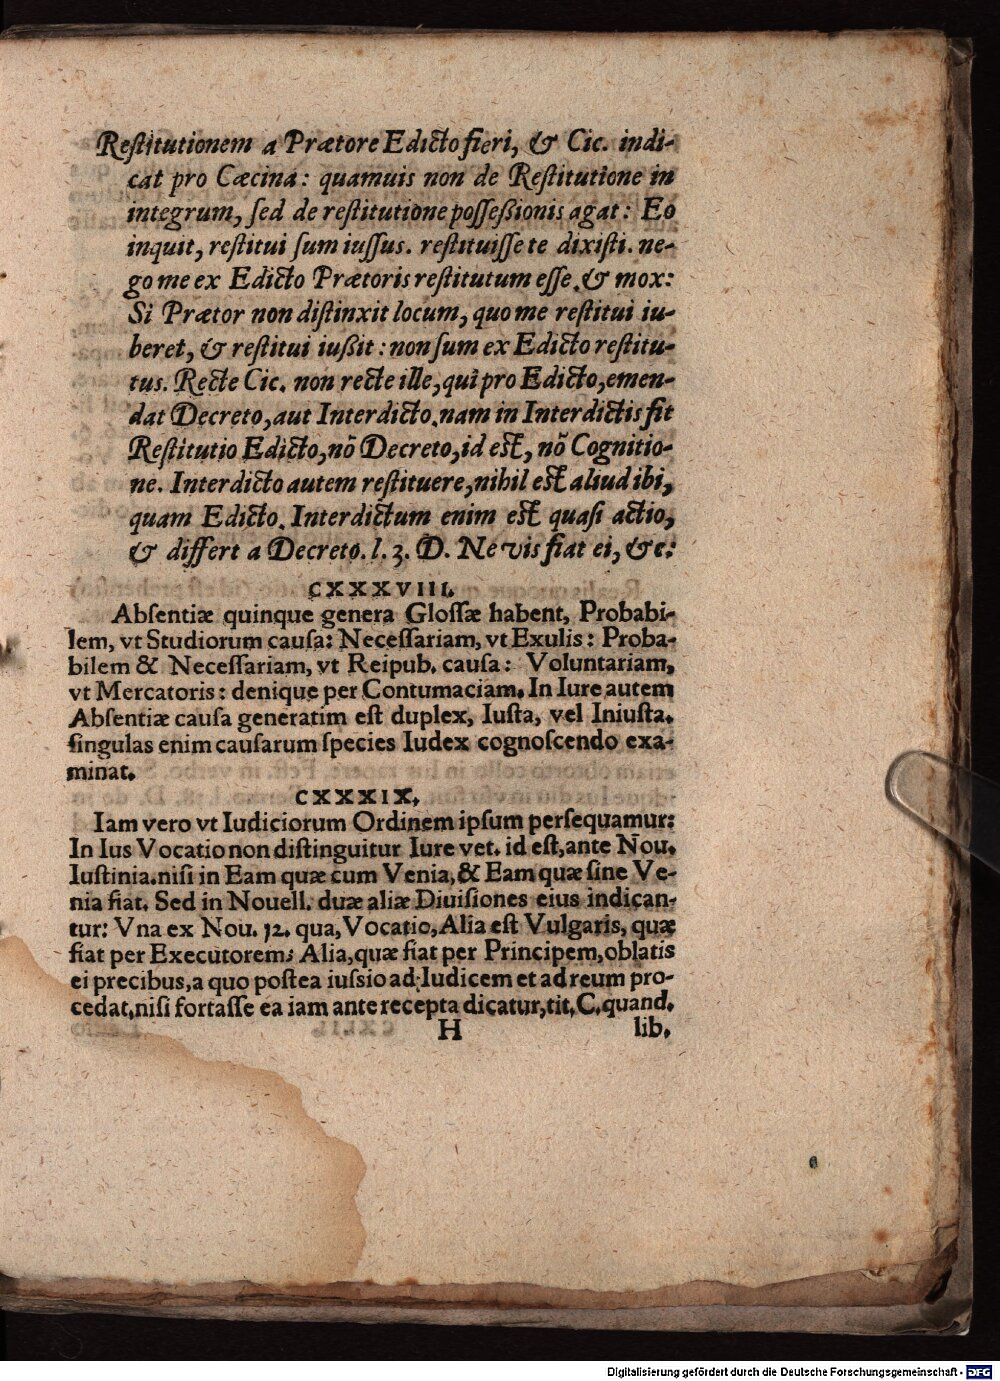 Reſtitutionem a Prætore Edicto fieri, & Cic. indi-
cat pro Cæcina: quamuis non de Reſtitutione in
integrum, ſed de reſtitutione poſſeßionis agat: Eo
inquit, reſtitui ſum iuſſus. reſtituiſſe te dixiſti. ne-
go me ex Edicto Prætoris reſtitutum eſſe. & mox:
Si Prætor non diſtinxit locum, quo me reſtitui iu-
beret, & reſtitui iußit: non ſum ex Edicto reſtitu-
tus. Recte Cic. non recte ille, qui pro Edicto, emen-
dat Decreto, aut Interdicto. nam in Interdictis fit
Reſtitutio Edicto, nõ Decreto, id eſt, nõ Cognitio-
ne. Interdicto autem reſtituere, nihil eſt aliud ibi,
quam Edicto. Interdictum enim eſt quaſi actio,
& differt a Decreto. l. 3. D. Ne vis fiat ei, &c.
CXXXVIII.
Abſentiæ quinque genera Gloſſæ habent, Probabi-
lem, vt Studiorum cauſa: Neceſſariam, vt Exulis: Proba-
bilem & Neceſſariam, vt Reipub. cauſa: Voluntariam,
vt Mercatoris: denique per Contumaciam. In Iure autem
Abſentiæ cauſa generatim eſt duplex, Iuſta, vel Iniuſta.
ſingulas enim cauſarum ſpecies Iudex cognoſcendo exa-
minat.
CXXXIX.
Iam vero vt Iudiciorum Ordinem ipſum perſequamur:
In Ius Vocatio non diſtinguitur Iure vet. id eſt, ante Nou.
Iuſtinia. niſi in Eam quæ cum Venia, & Eam quæ ſine Ve-
nia fiat. Sed in Nouell. duæ aliæ Diuiſiones eius indican-
tur: Vna ex Nou. 12. qua, Vocatio, Alia eſt Vulgaris, quæ
fiat per Executorem: Alia, quæ fiat per Principem, oblatis
ei precibus, a quo poſtea iuſsio ad Iudicem et ad reum pro-
cedat, niſi fortaſſe ea iam ante recepta dicatur, tit. C. quand.
H lib.
Digitalisierung gefördert durch die Deutsche Forschungsgemeinschaft - DFG